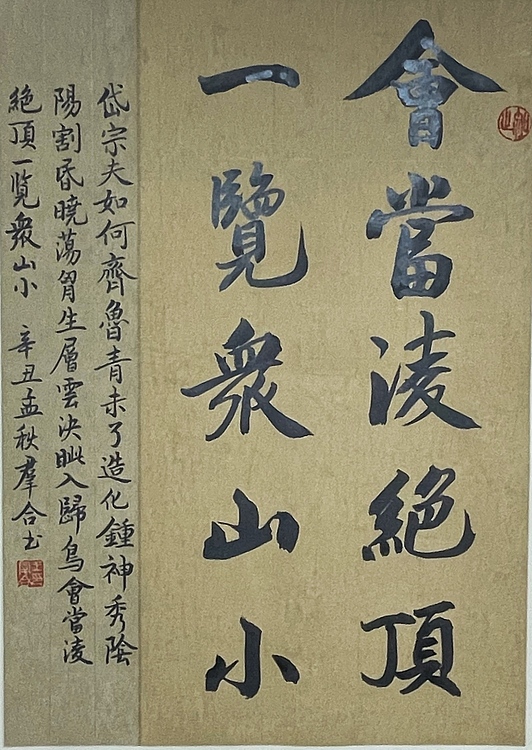 會當淩絕頂
一覽衆山小
岱宗夫如何齊魯青未了造化鍾神秀陰
陽割昏曉蕩胷生層雲決眦入歸鳥會當淩
絕頂一覽衆山小 辛丑孟秋羣合书